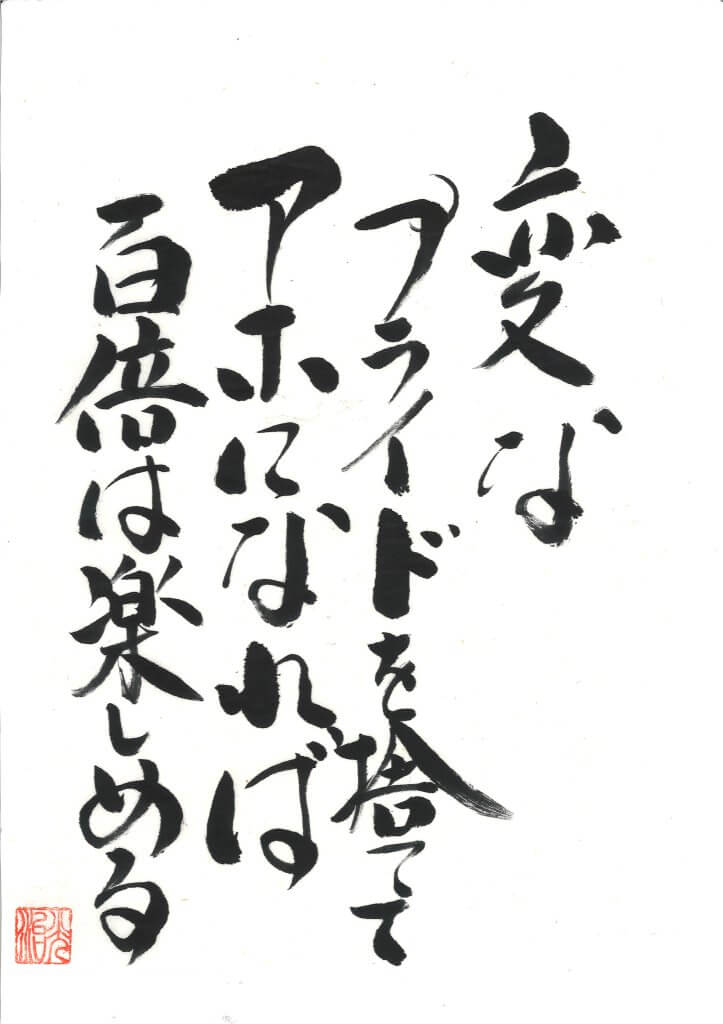 変な
プライドを捨てて
アホになれば
百倍は楽しめる